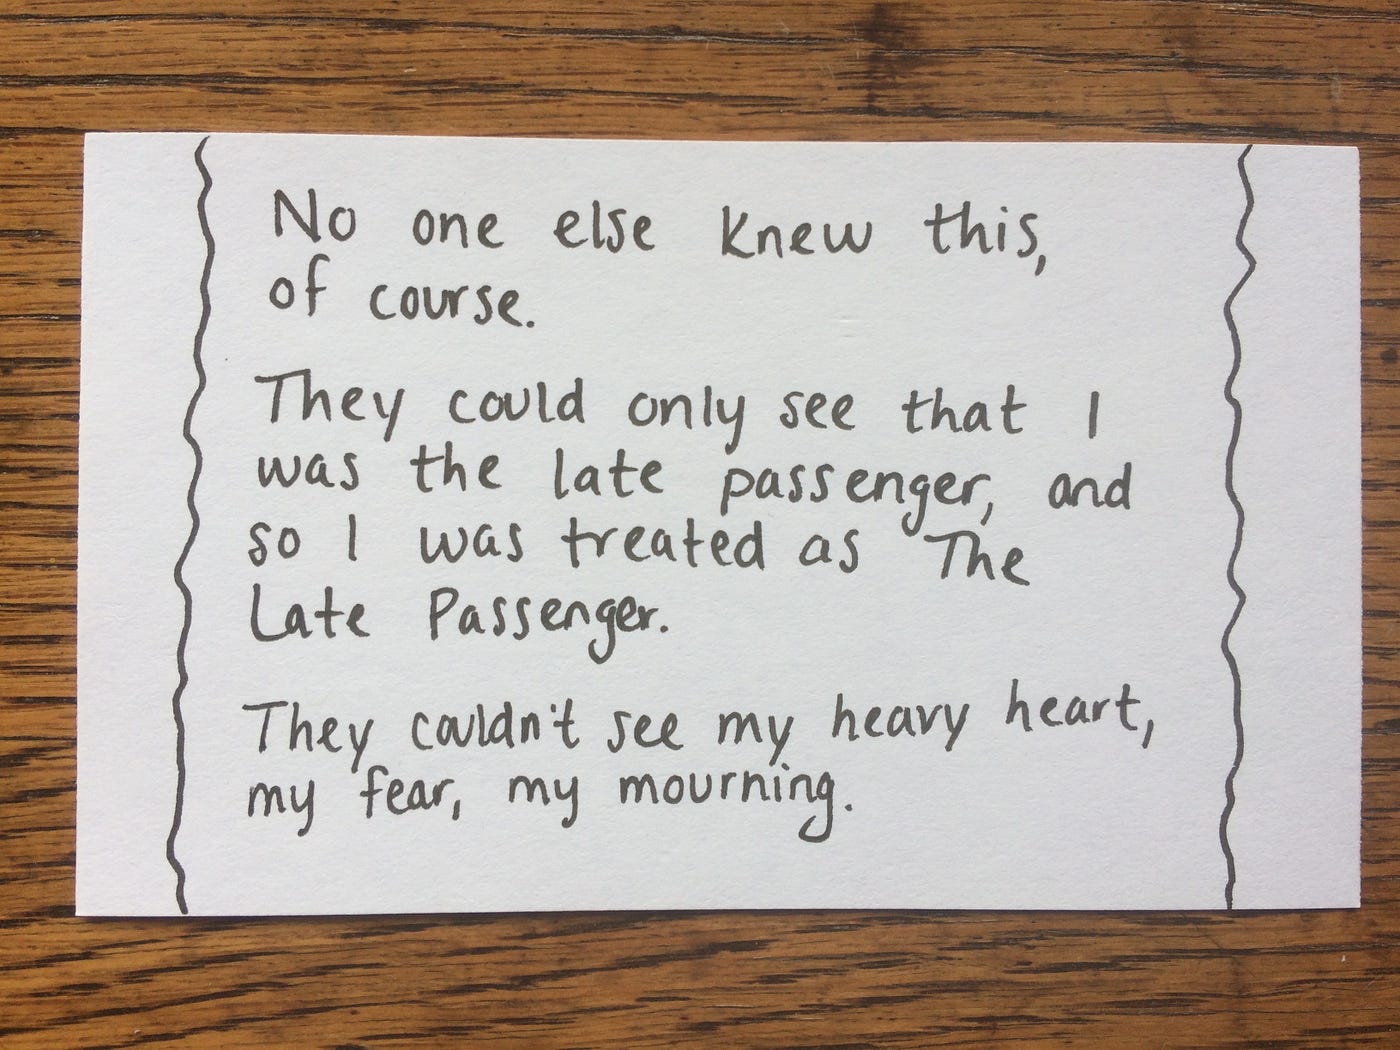 No one else knew this,
of course.
They could only see that I
was the late passenger, and
so I was treated as The
Late Passenger.
They couldn't see my heavy heart,
my fear, my mourning.